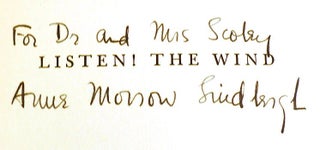 For Dr and Mrs Scoley
LISTEN! THE WIND
Anne Morrow Lindbergh